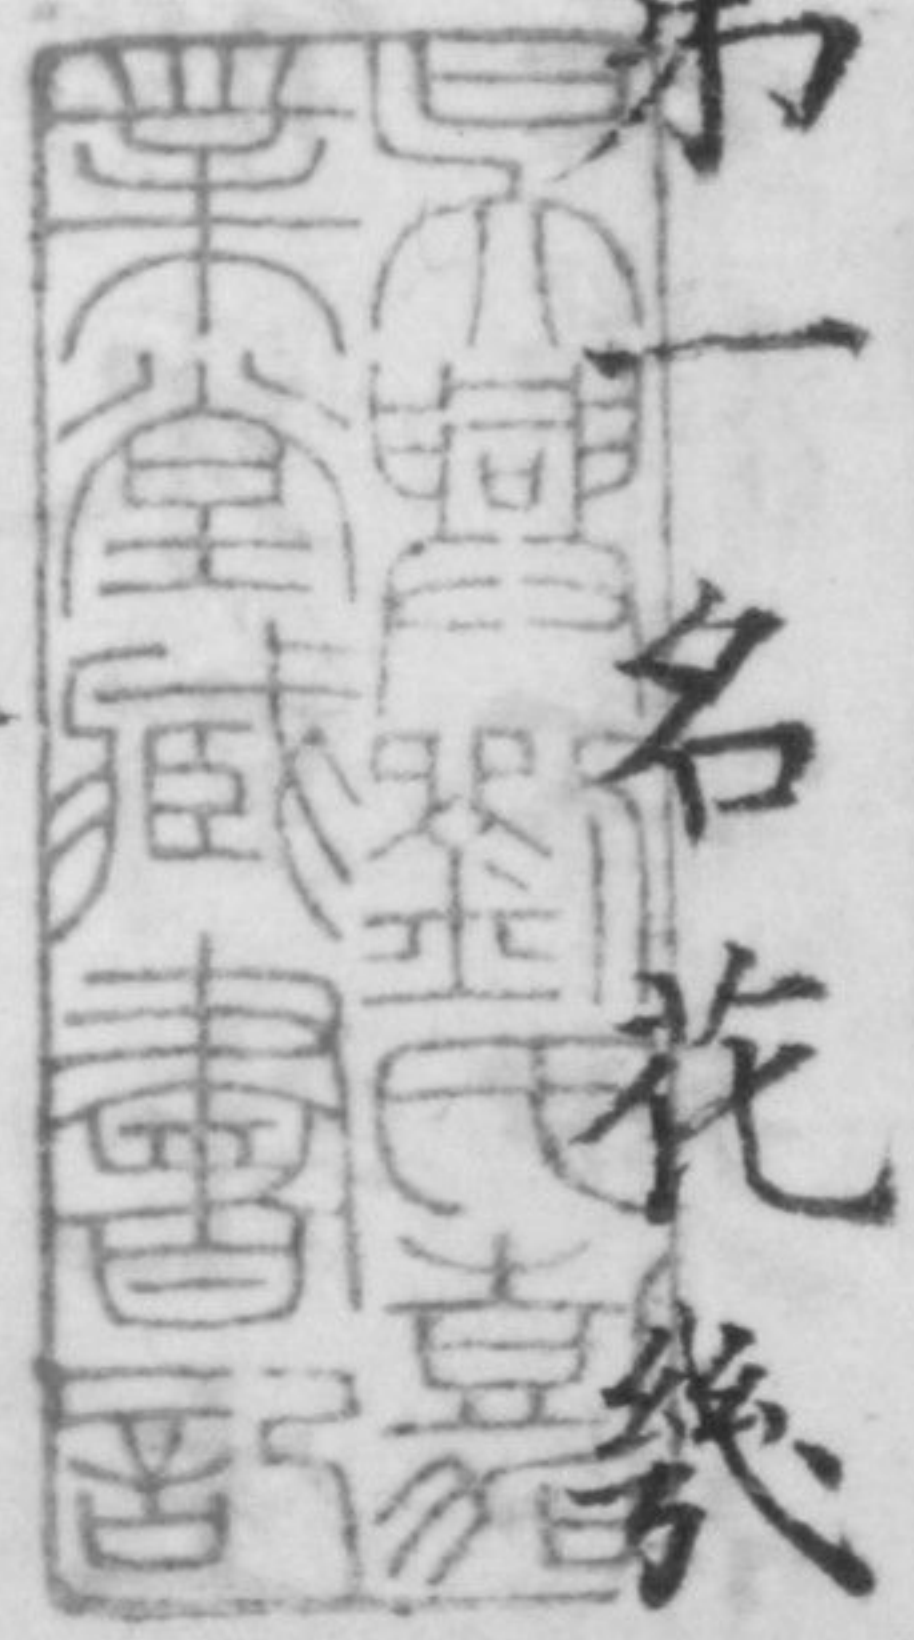 第一名花幾
吳興劉氏嘉
業堂藏書記